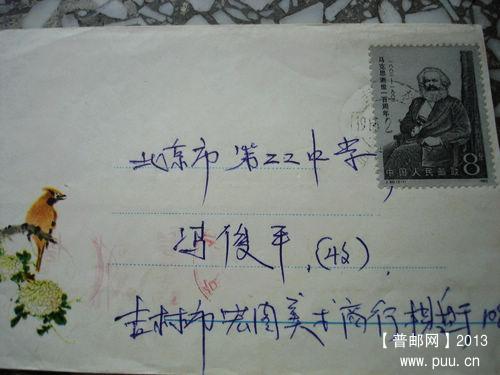 马克思逝世一百周年
一八八三——一九八三
中国人民邮政
8分
北京市第二二中学
冯俊平（收）
吉林市宏图美术商行
【普邮网】2013
www.puu.cn